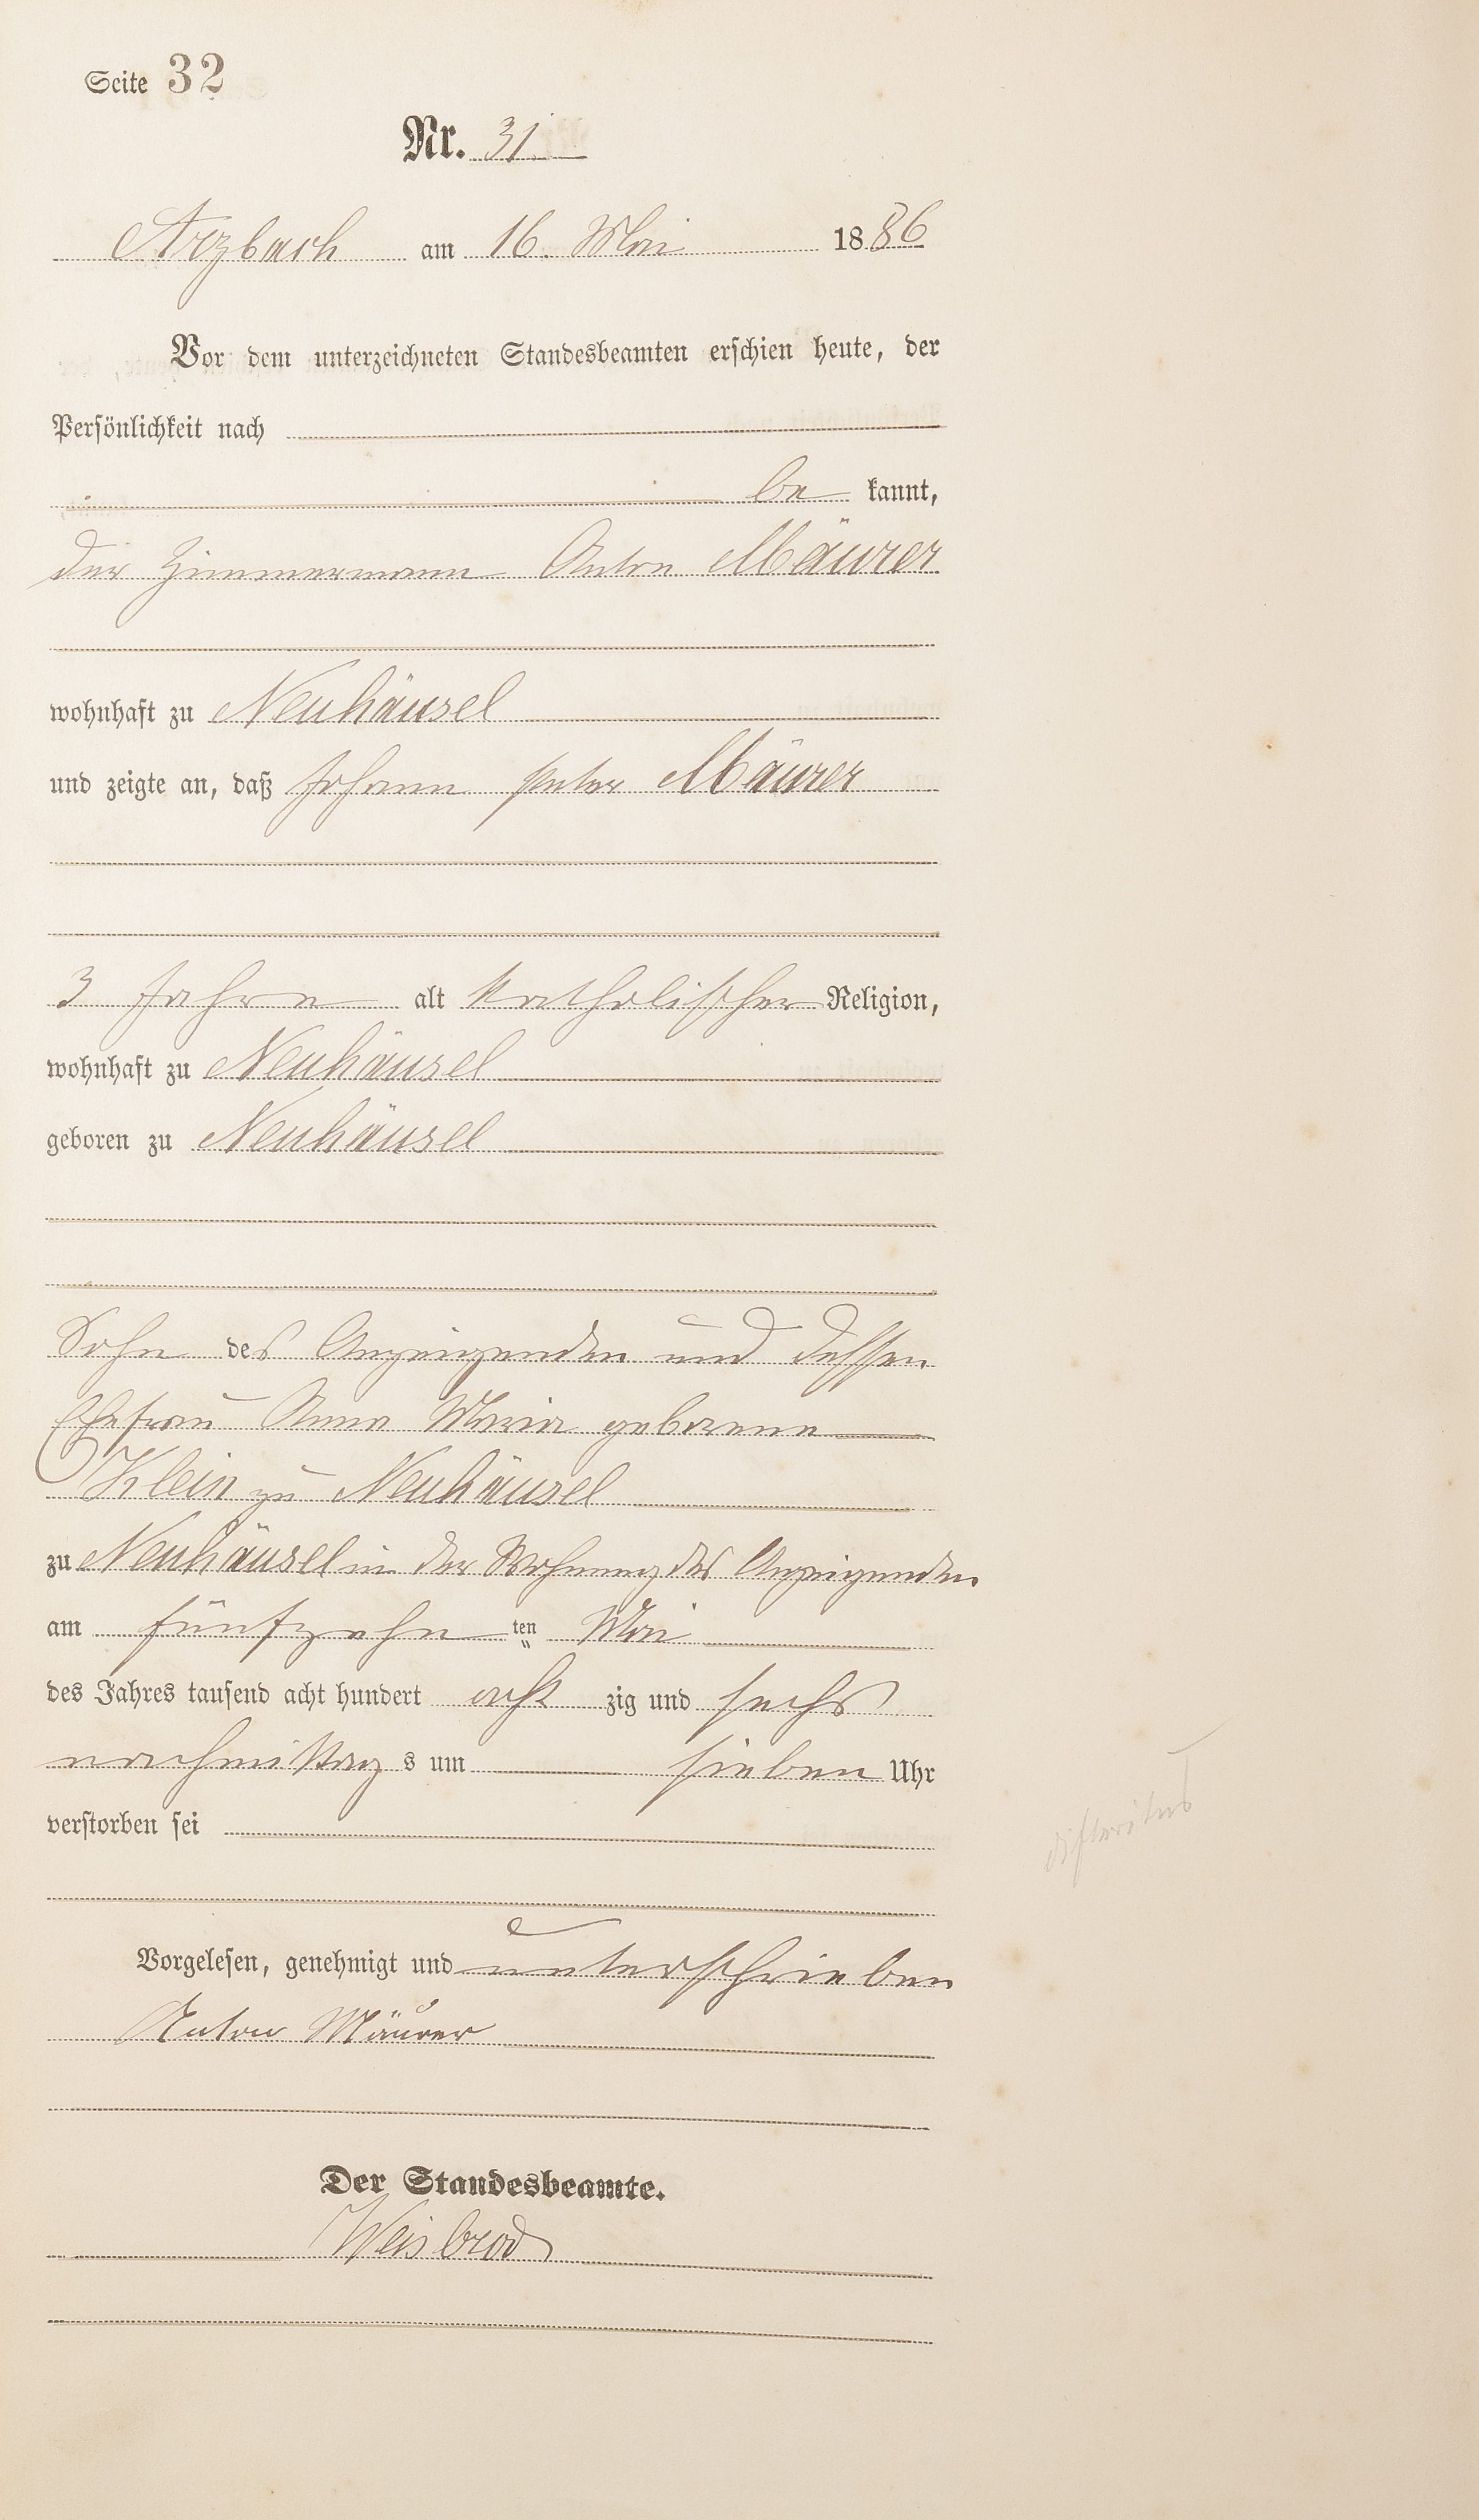 Seite 32
Nr. 31
Arzbach am 16. Mai 1886
Vor dem unterzeichneten Standesbeamten erschien heute, der
Persönlichkeit nach
be kannt,
der Zimmermann Anton Mäurer
wohnhaft zu Neuhäusel
und zeigte an, daß Johann Peter Mäurer
3 Jahre alt katholischer Religion,
wohnhaft zu Neuhäusel
geboren zu Neuhäusel
Sohn des Anzeigenden und dessen
Ehefrau Anna Maria geborene
Klein zu Neuhäusel
zu Neuhäusel in der Wohnung des Anzeigenden
am fünfzehn ten Mai
des Jahres tausend acht hundert acht zig und sechs
nachmittag s um sieben Uhr
verstorben sei
Vorgelesen, genehmigt und unterschrieben
Anton Mäurer
Der Standesbeamte.
Weisbrod